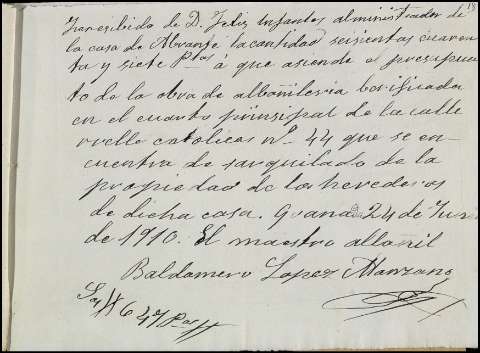 He recibido de D. Felix Infantes alministrador de
la casa de Abrante la cantidad seisientas cuaren-
ta y siete Ptas á que asiende el presupues
to de la obra de albañileria berificada
en el cuarto prinsipal de la calle
catolicos nº 44 que se en-
cuentra de sarquilado de la
propiedad de los herederos
de dicha casa. Granada 24 de Junio
de 1910. El maestro albañil
Baldomero Lopez Manzano
Son # 647 Ptas #